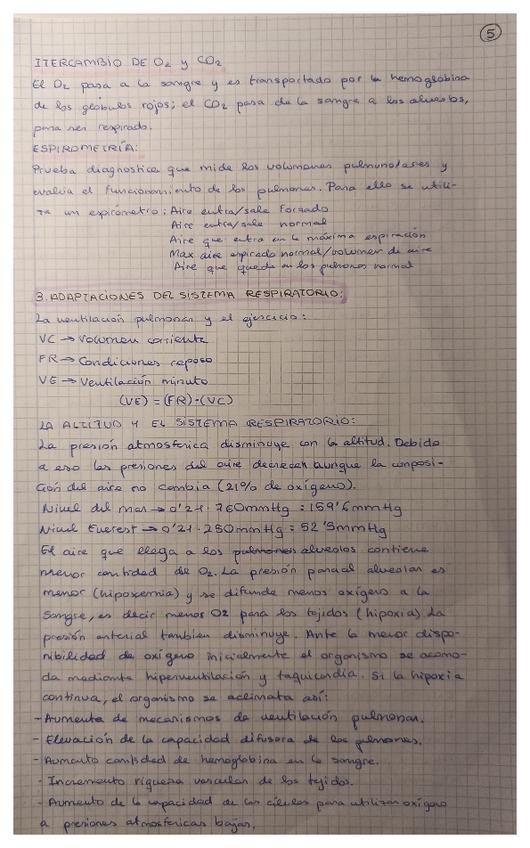 5
ITERCAMBIO DE O₂ y CO₂
El O₂ pasa a la sangre y es transportado por la hemoglobina
de los globulos rojos; el CO₂ pasa de la sangre a los alveolos,
para ser respirado.
ESPIROMETRÍA:
Prueba diagnostica que mide los volumenes pulmonares y
evalua el funcionamiento de los pulmones. Para ello se utili-
za un espirometro: Aire entra/sale forzado
Aire entra/sale normal
Aire que entra en la máxima espiración
Max aire espirado normal/volumen de aire
Aire que queda en los pulmones normal
3. ADAPTACIONES DEL SISTEMA RESPIRATORIO:
La ventilación pulmonar y el ejercicio:
VC → Volumen corriente
FR → Condiciones reposo
VE → Ventilación minuto
(VE) = (FR)·(VC)
LA ALTITUD Y EL SISTEMA RESPIRATORIO:
La presión atmosferica disminuye con la altitud. Debido
a eso las presiones del aire decrecen aunque la composi-
ción del aire no cambia (21% de oxígeno).
Nivel del mar → 0'21 · 760mmHg : 159'6mmHg
Nivel Everest → 0'21 · 250mmHg : 52'5mmHg
El aire que llega a los pulmones alveolos contiene
menor cantidad de O₂. La presión parcial alveolar es
menor (hipoxemia) y se difunde menos oxígeno a la
sangre, es decir menos O2 para los tejidos (hipoxia). La
presión arterial tambien disminuye. Ante la menor dispo-
nibilidad de oxígeno inicialmente el organismo se acomo-
da mediante hiperventilación y taquicardia. Si la hipoxia
continua, el organismo se aclimata así:
- Aumenta de mecanismos de ventilación pulmonar.
- Elevación de la capacidad difusora de los pulmones.
- Aumento cantidad de hemoglobina en la sangre.
- Incremento riqueza vascular de los tejidos.
- Aumento de la capacidad de las células para utilizar oxígeno
a presiones atmosfericas bajas.